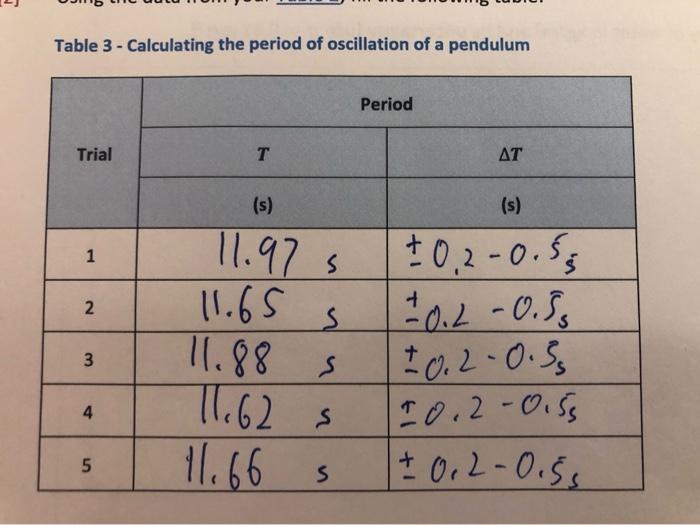 Table 3 - Calculating the period of oscillation of a pendulum
Period
Trial T ΔT
(s) (s)
1 11.97 s ±0.2-0.5s
2 11.65 s ±0.2-0.5s
3 11.88 s ±0.2-0.5s
4 11.62 s ±0.2-0.5s
5 11.66 s ±0.2-0.5s